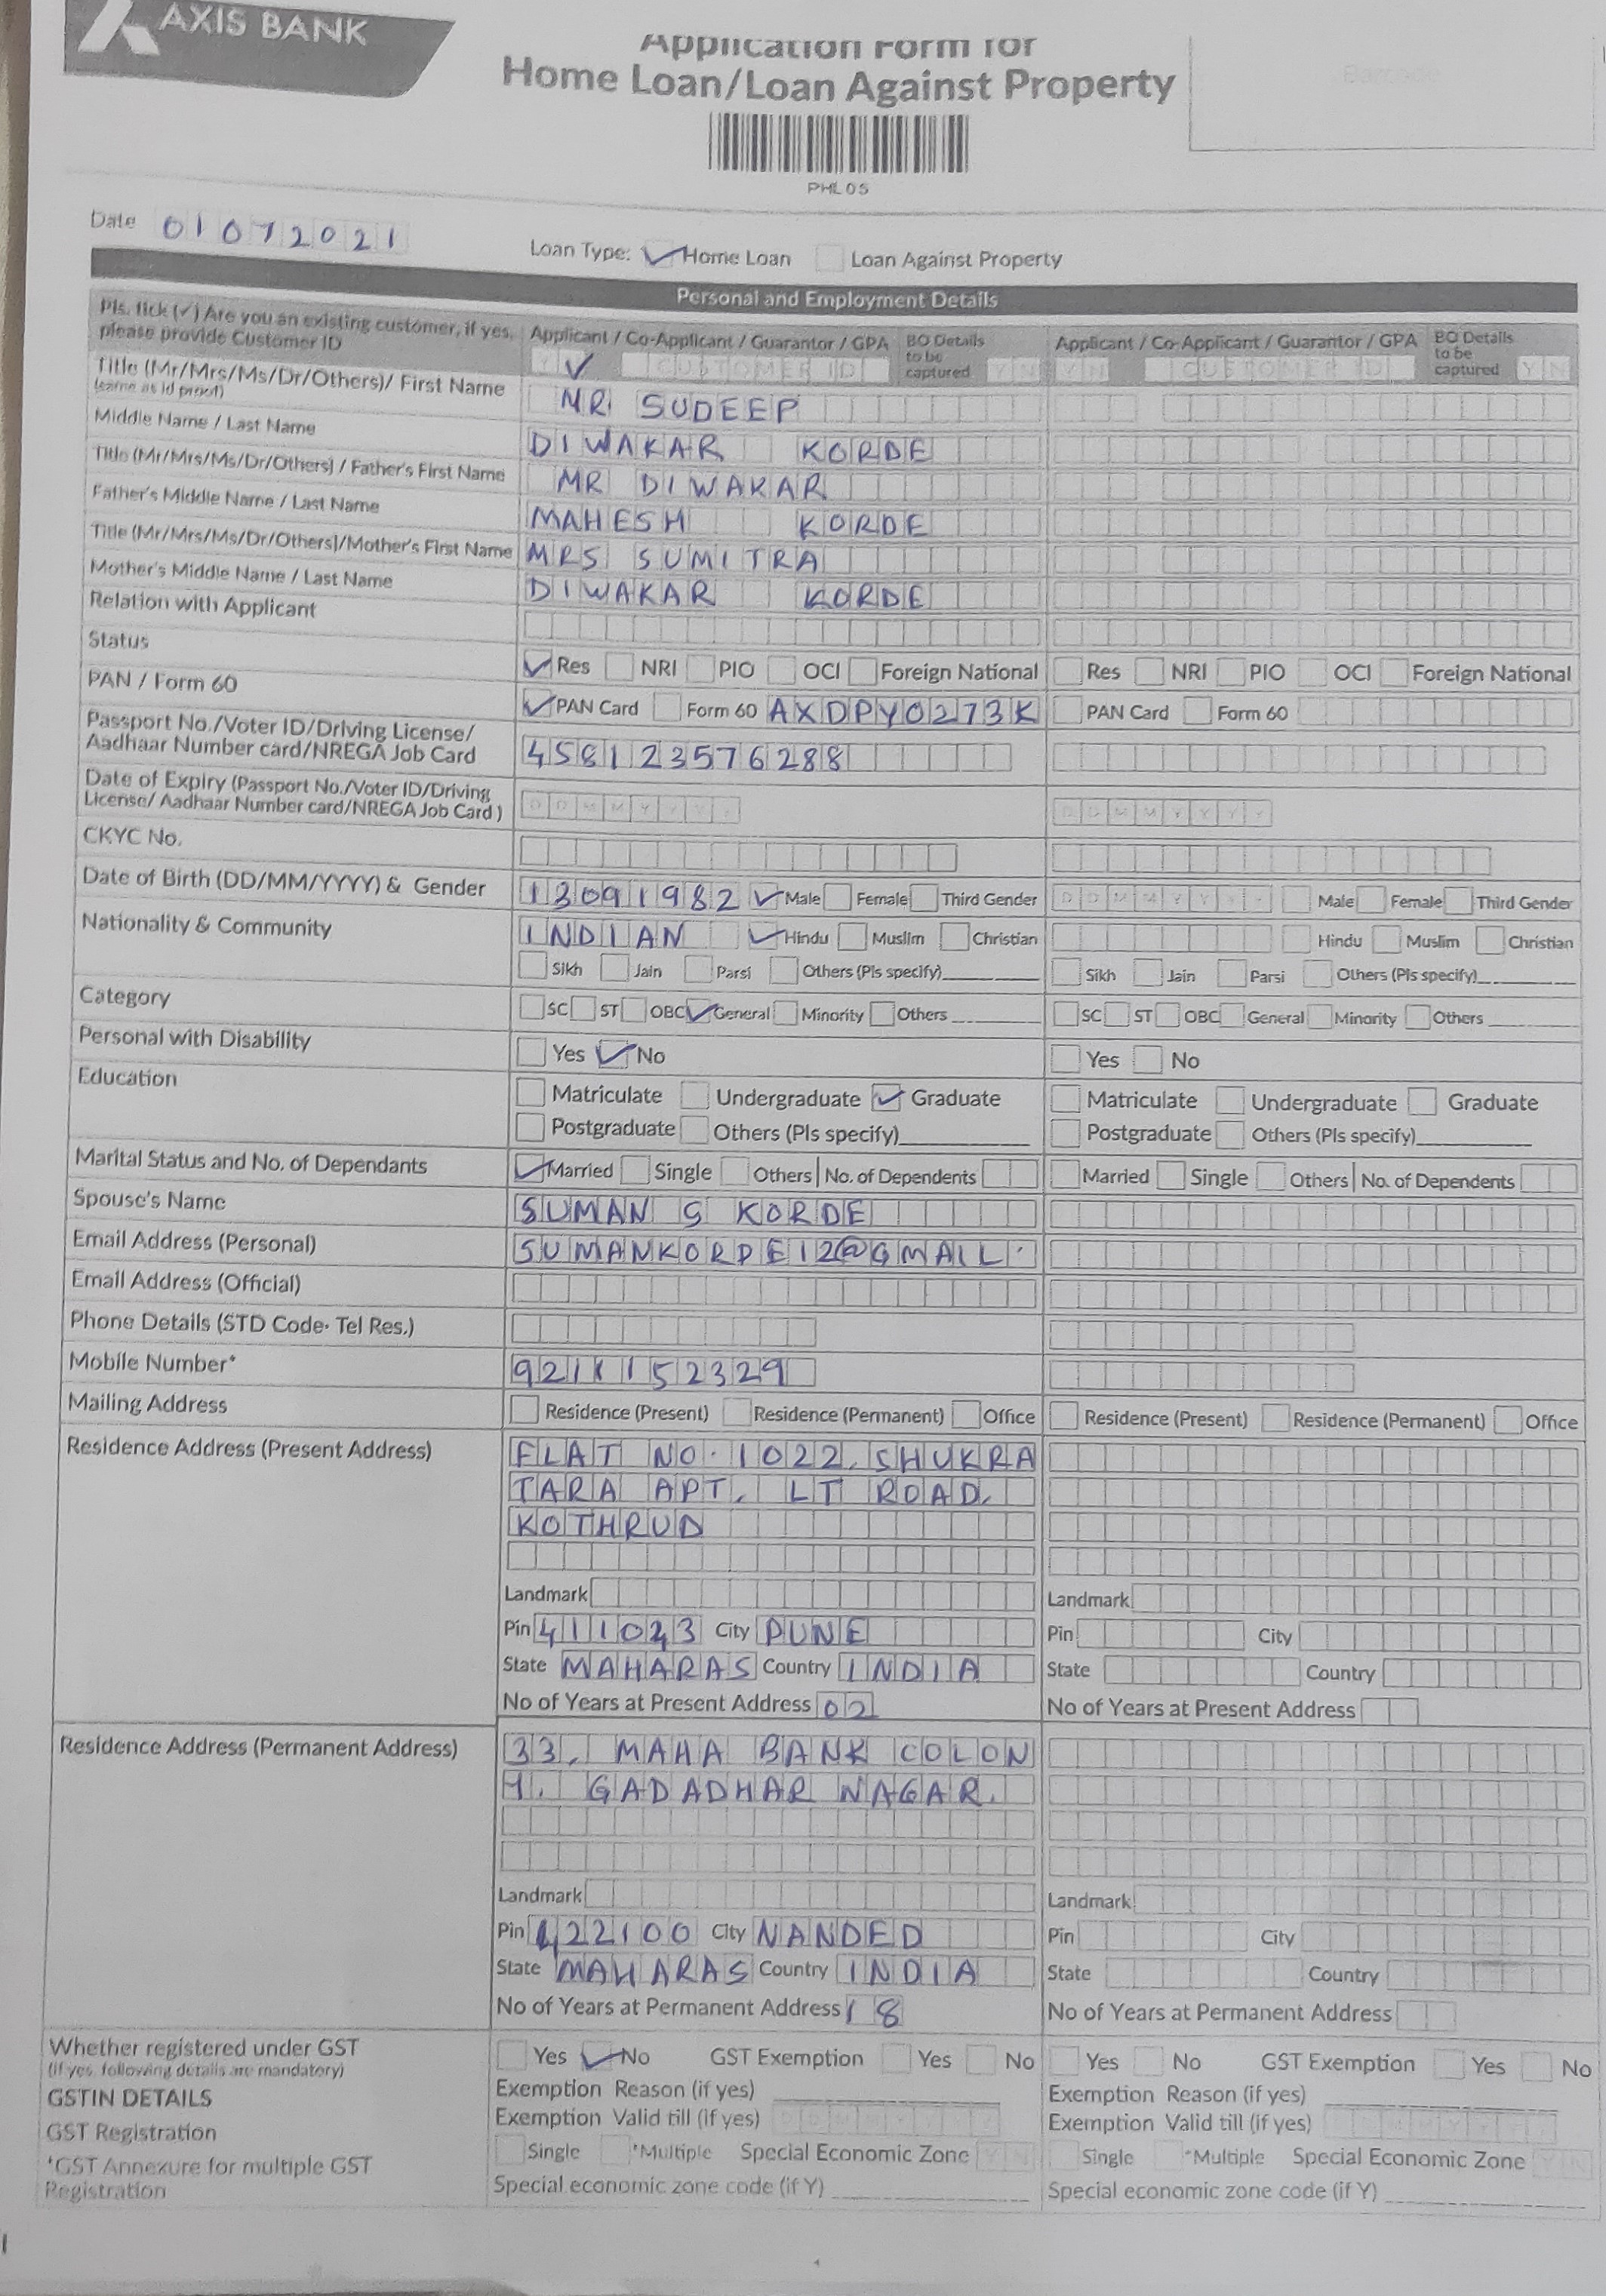 AXIS BANK
Application Form for
Home Loan/Loan Against Property
PHL05
Date 01072021
Loan Type: Home Loan Loan Against Property
Personal and Employment Details
Pls. tick (✓) Are you an existing customer, if yes, please provide Customer ID
Applicant / Co-Applicant / Guarantor / GPA BO Details to be captured Y N
CUSTOMER ID
Applicant / Co-Applicant / Guarantor / GPA BO Details to be captured Y N
Y N CUSTOMER ID
Title (Mr/Mrs/Ms/Dr/Others)/ First Name MR SUDEEP
(same as id proof)
Middle Name / Last Name DIWAKAR KORDE
Title (Mr/Mrs/Ms/Dr/Others) / Father's First Name MR DIWAKAR
Father's Middle Name / Last Name MAHESH KORDE
Title (Mr/Mrs/Ms/Dr/Others)/Mother's First Name MRS SUMITRA
Mother's Middle Name / Last Name DIWAKAR KORDE
Relation with Applicant
Status Res NRI PIO OCI Foreign National Res NRI PIO OCI Foreign National
PAN / Form 60 PAN Card Form 60 AXDPY0273K PAN Card Form 60
Passport No./Voter ID/Driving License/
Aadhaar Number card/NREGA Job Card 458123576288
Date of Expiry (Passport No./Voter ID/Driving
License/ Aadhaar Number card/NREGA Job Card) DDMMYYYY DDMMYYYY
CKYC No.
Date of Birth (DD/MM/YYYY) & Gender 13091982 Male Female Third Gender DDMMYYYY Male Female Third Gender
Nationality & Community INDIAN Hindu Muslim Christian Hindu Muslim Christian
Sikh Jain Parsi Others (Pls specify) Sikh Jain Parsi Others (Pls specify)
Category SC ST OBC General Minority Others SC ST OBC General Minority Others
Personal with Disability Yes No Yes No
Education Matriculate Undergraduate Graduate Matriculate Undergraduate Graduate
Postgraduate Others (Pls specify) Postgraduate Others (Pls specify)
Marital Status and No. of Dependants Married Single Others No. of Dependents Married Single Others No. of Dependents
Spouse's Name SUMAN S KORDE
Email Address (Personal) SUMANKORDE12@GMAIL.
Email Address (Official)
Phone Details (STD Code- Tel Res.)
Mobile Number* 9211152329
Mailing Address Residence (Present) Residence (Permanent) Office Residence (Present) Residence (Permanent) Office
Residence Address (Present Address) FLAT NO. 1022, SHUKRA
TARA APT, LT ROAD,
KOTHRUD
Landmark Landmark
Pin 411023 City PUNE Pin City
State MAHARAS Country INDIA State Country
No of Years at Present Address 02 No of Years at Present Address
Residence Address (Permanent Address) 33, MAHA BANK COLON
Y. GADADHAR NAGAR.
Landmark Landmark
Pin 422100 City NANDED Pin City
State MAHARAS Country INDIA State Country
No of Years at Permanent Address 18 No of Years at Permanent Address
Whether registered under GST Yes No GST Exemption Yes No Yes No GST Exemption Yes No
(if yes, following details are mandatory)
Exemption Reason (if yes) Exemption Reason (if yes)
GSTIN DETAILS
Exemption Valid till (if yes) Exemption Valid till (if yes)
GST Registration Single *Multiple Special Economic Zone Y N Single *Multiple Special Economic Zone Y N
*GST Annexure for multiple GST
Registration Special economic zone code (if Y) Special economic zone code (if Y)